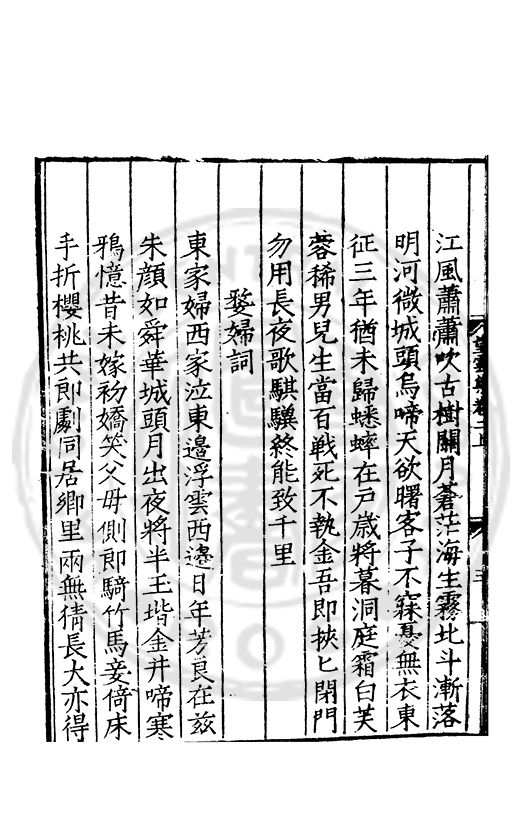 江風蕭蕭吹古樹關月蒼茫海生霧北斗漸落
明河微城頭烏啼天欲曙客子不寐憂無衣東
征三年猶未歸蟋蟀在戸歲將暮洞庭霜白芙
蓉稀男兒生當百戰死不執金吾即挾匕閉門
勿用長夜歌騏驥終能致千里
婺婦詞
東家婦西家泣東邉浮雲西邉日年芳良在兹
朱顔如舜華城頭月出夜將半玉堦金井啼寒
鴉憶昔未嫁初嬌笑父毋側郎騎竹馬妾倚床
手折櫻桃共郎劇同居鄉里兩無猜長大亦得
望雲集卷二